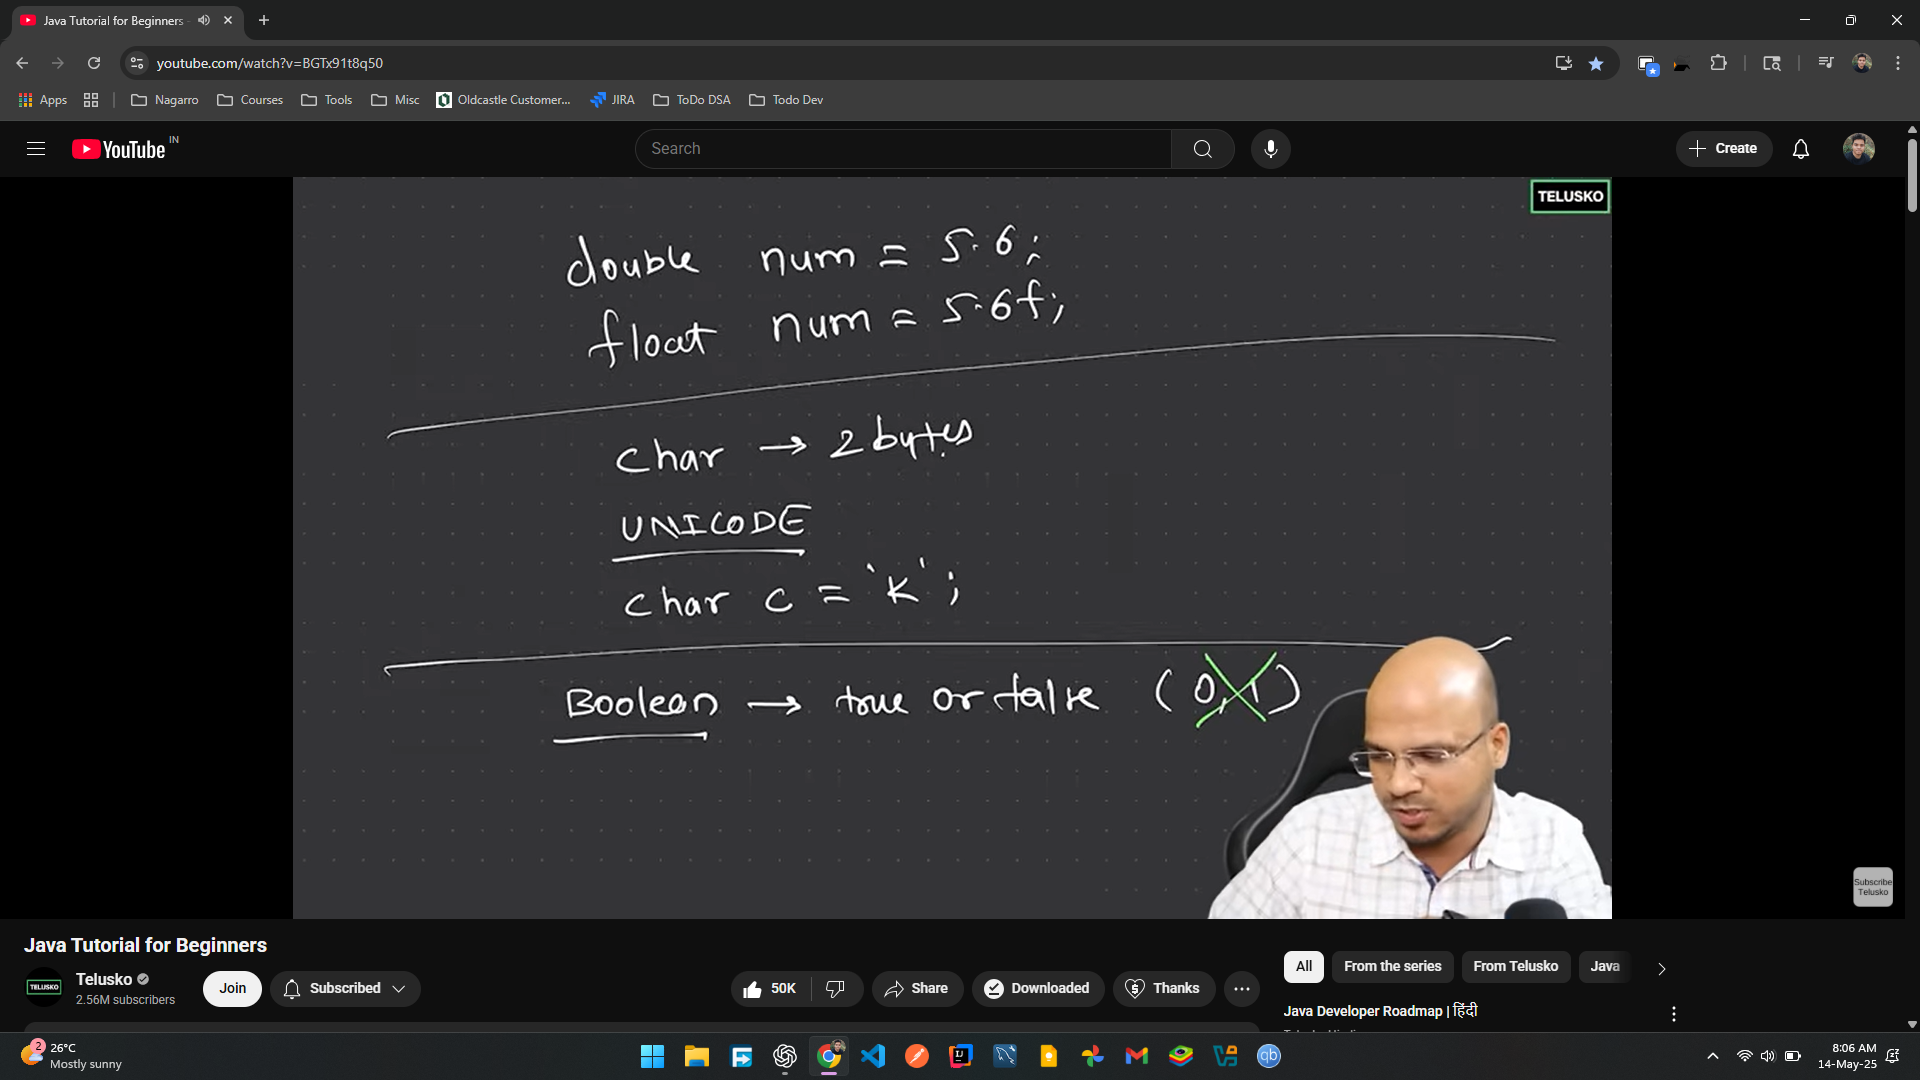 Java Tutorial for Beginners -
youtube.com/watch?v=BGTx91t8q50
Apps Nagarro Courses Tools Misc Oldcastle Customer... JIRA ToDo DSA Todo Dev
YouTube IN
Search
Create
TELUSKO
double num = 5.6;
float num = 5.6f;
char → 2 bytes
UNICODE
char c = 'K';
Boolean → true or false (0,1)
Subscribe
Telusko
Java Tutorial for Beginners
TELUSKO
Telusko
2.56M subscribers
Join
Subscribed
50K
Share
Downloaded
Thanks
All From the series From Telusko Java
Java Developer Roadmap | हिंदी
2
26°C
Mostly sunny
8:06 AM
14-May-25